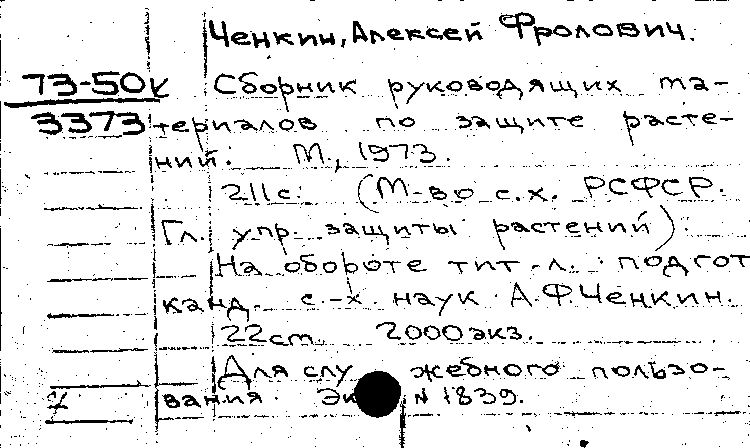 Ченкин, Алексей Фролович.
73-50к Сборник руководящих ма-
3373 териалов по защите расте-
ний. М., 1973.
211с. (М-во с.х. РСФСР.
Гл. упр. защиты растений).
На обороте тит. л.: подгот
канд. с.-х. наук А.Ф.Ченкин.
22см. 2000экз.
Для служебного пользо-
7 вания. Эк N 1839.